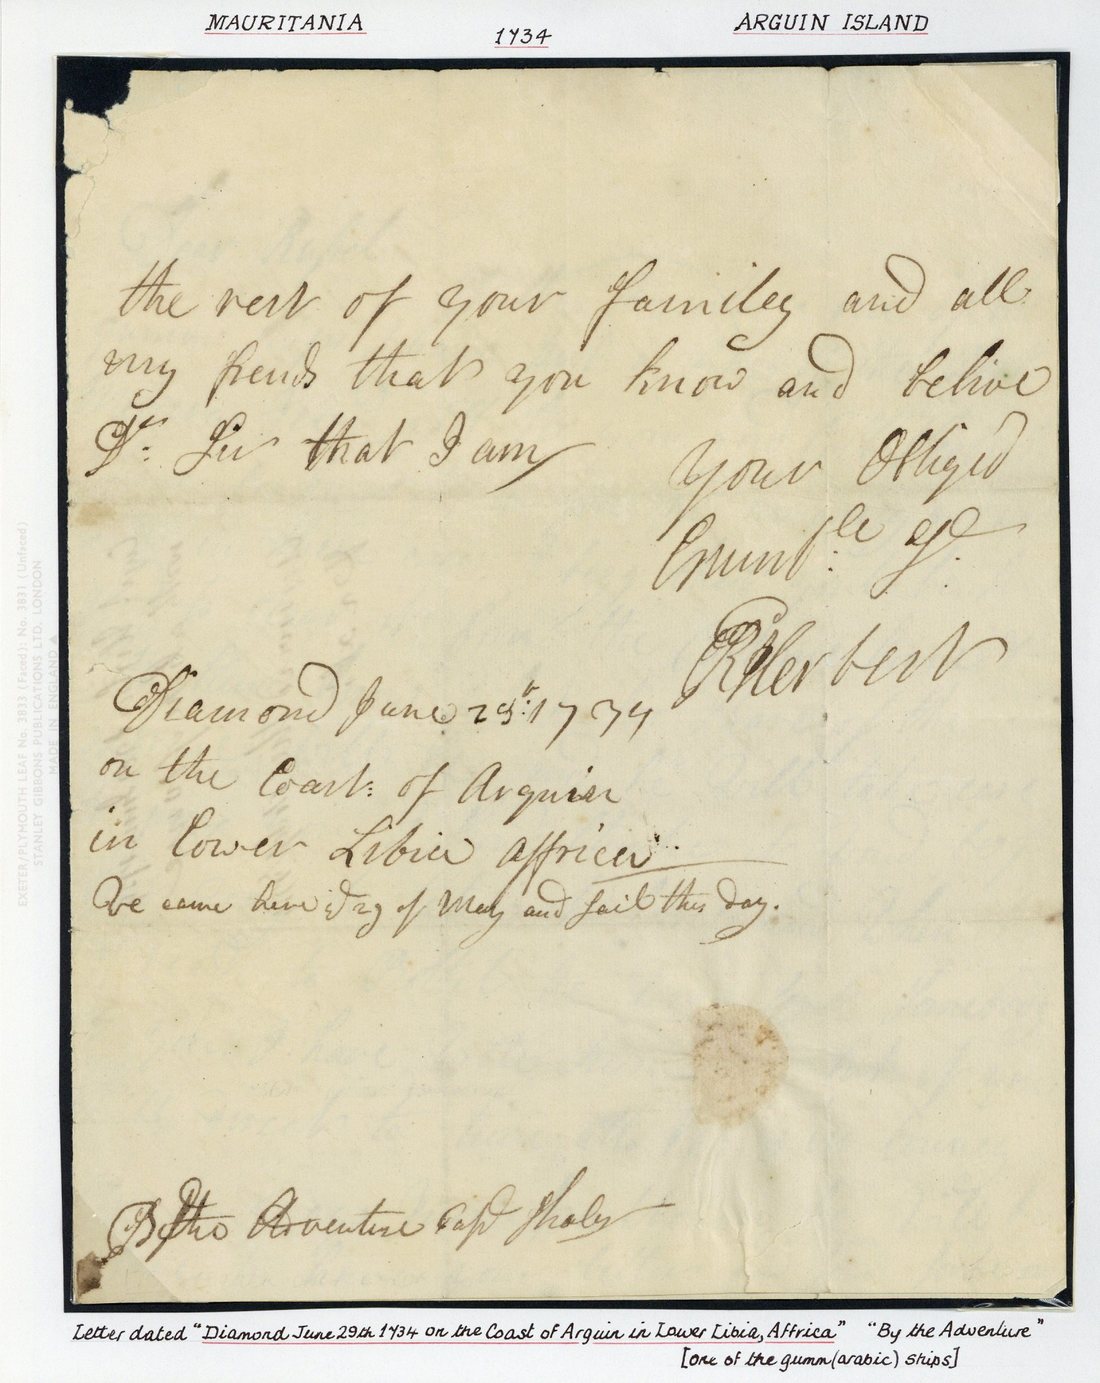 MAURITANIA
1734
ARGUIN ISLAND
the rest of your familey and all
my frends that you know and belive
Dr. Sir that I am
your Obliged
Humble. Se.
R Herbert
Diamond June 29th: 1734
on the Coast: of Arguin
in Lower Libia Affrica
We came here ye 29 of May and sail this day.
By the Adventure Capt
EXETER/PLYMOUTH LEAF No. 3833 (Faced): No. 3831 (Unfaced)
STANLEY GIBBONS PUBLICATIONS LTD. LONDON
MADE IN ENGLAND
Letter dated "Diamond June 29th 1734 on the Coast of Arguin in Lower Libia, Affrica" "By the Adventure"
[one of the gumm (arabic) ships]